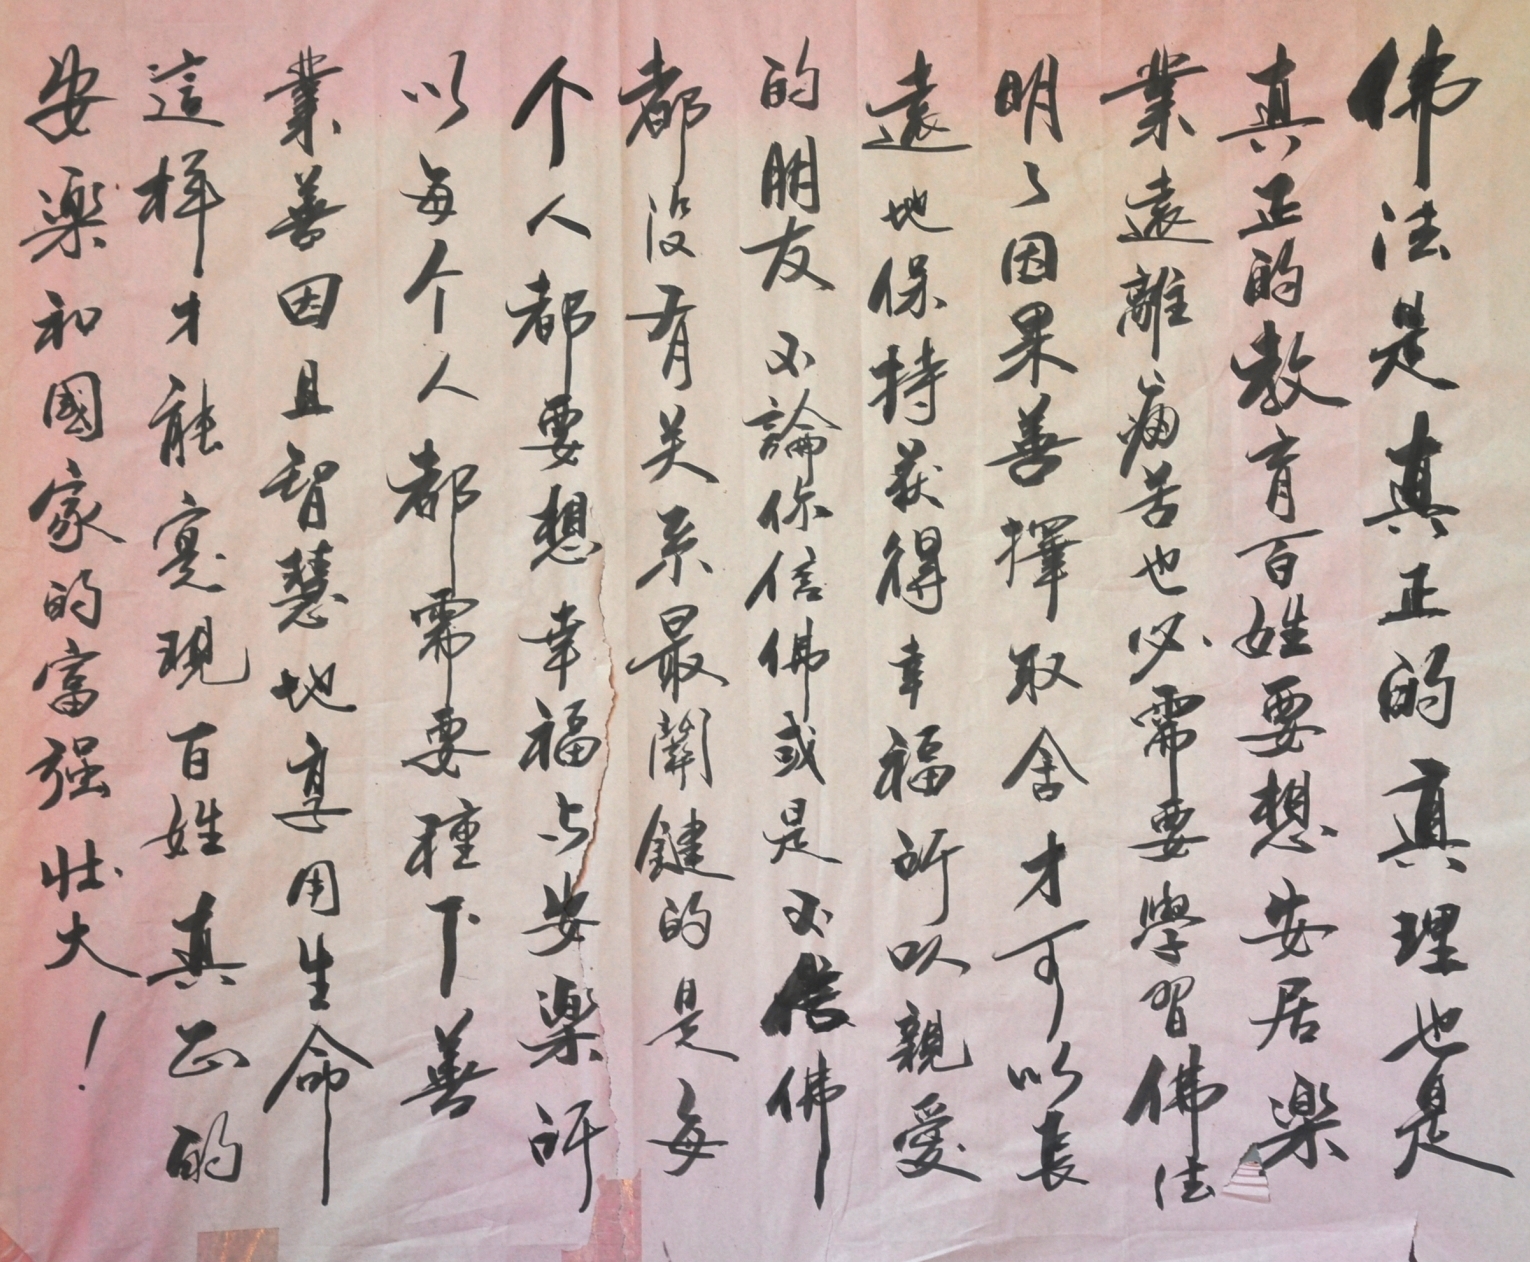 佛法是真正的真理也是
真正的教育百姓要想安居楽
業遠離痛苦也必需要學習佛法
明々因果善擇取舍才可以長
遠地保持获得幸福所以親愛
的朋友不論你信佛或是不信佛
都没有关系最關鍵的是每
个人都要想幸福与安楽所
以每个人都需要種下善
業善因且智慧地享用生命
這样才能寔現百姓真正的
安楽和國家的富强壮大！